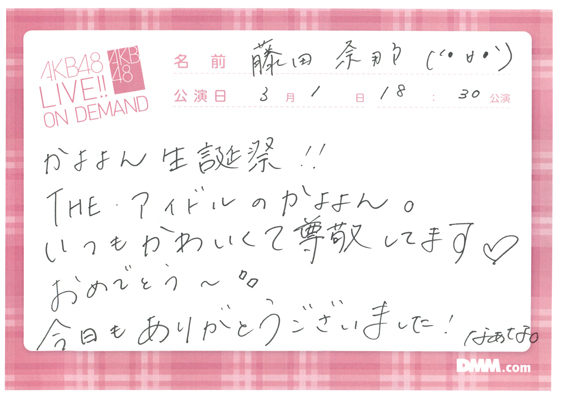 AKB48
LIVE!!
ON DEMAND
AKB
48
名前 藤田奈那 (°∀°)
公演日 3月1日 18:30公演
かよよん生誕祭!!
THE・アイドルのかよよん。
いつもかわいくて尊敬してます♡
おめでとう〜
今日もありがとうございました! なぁな。
DMM.com